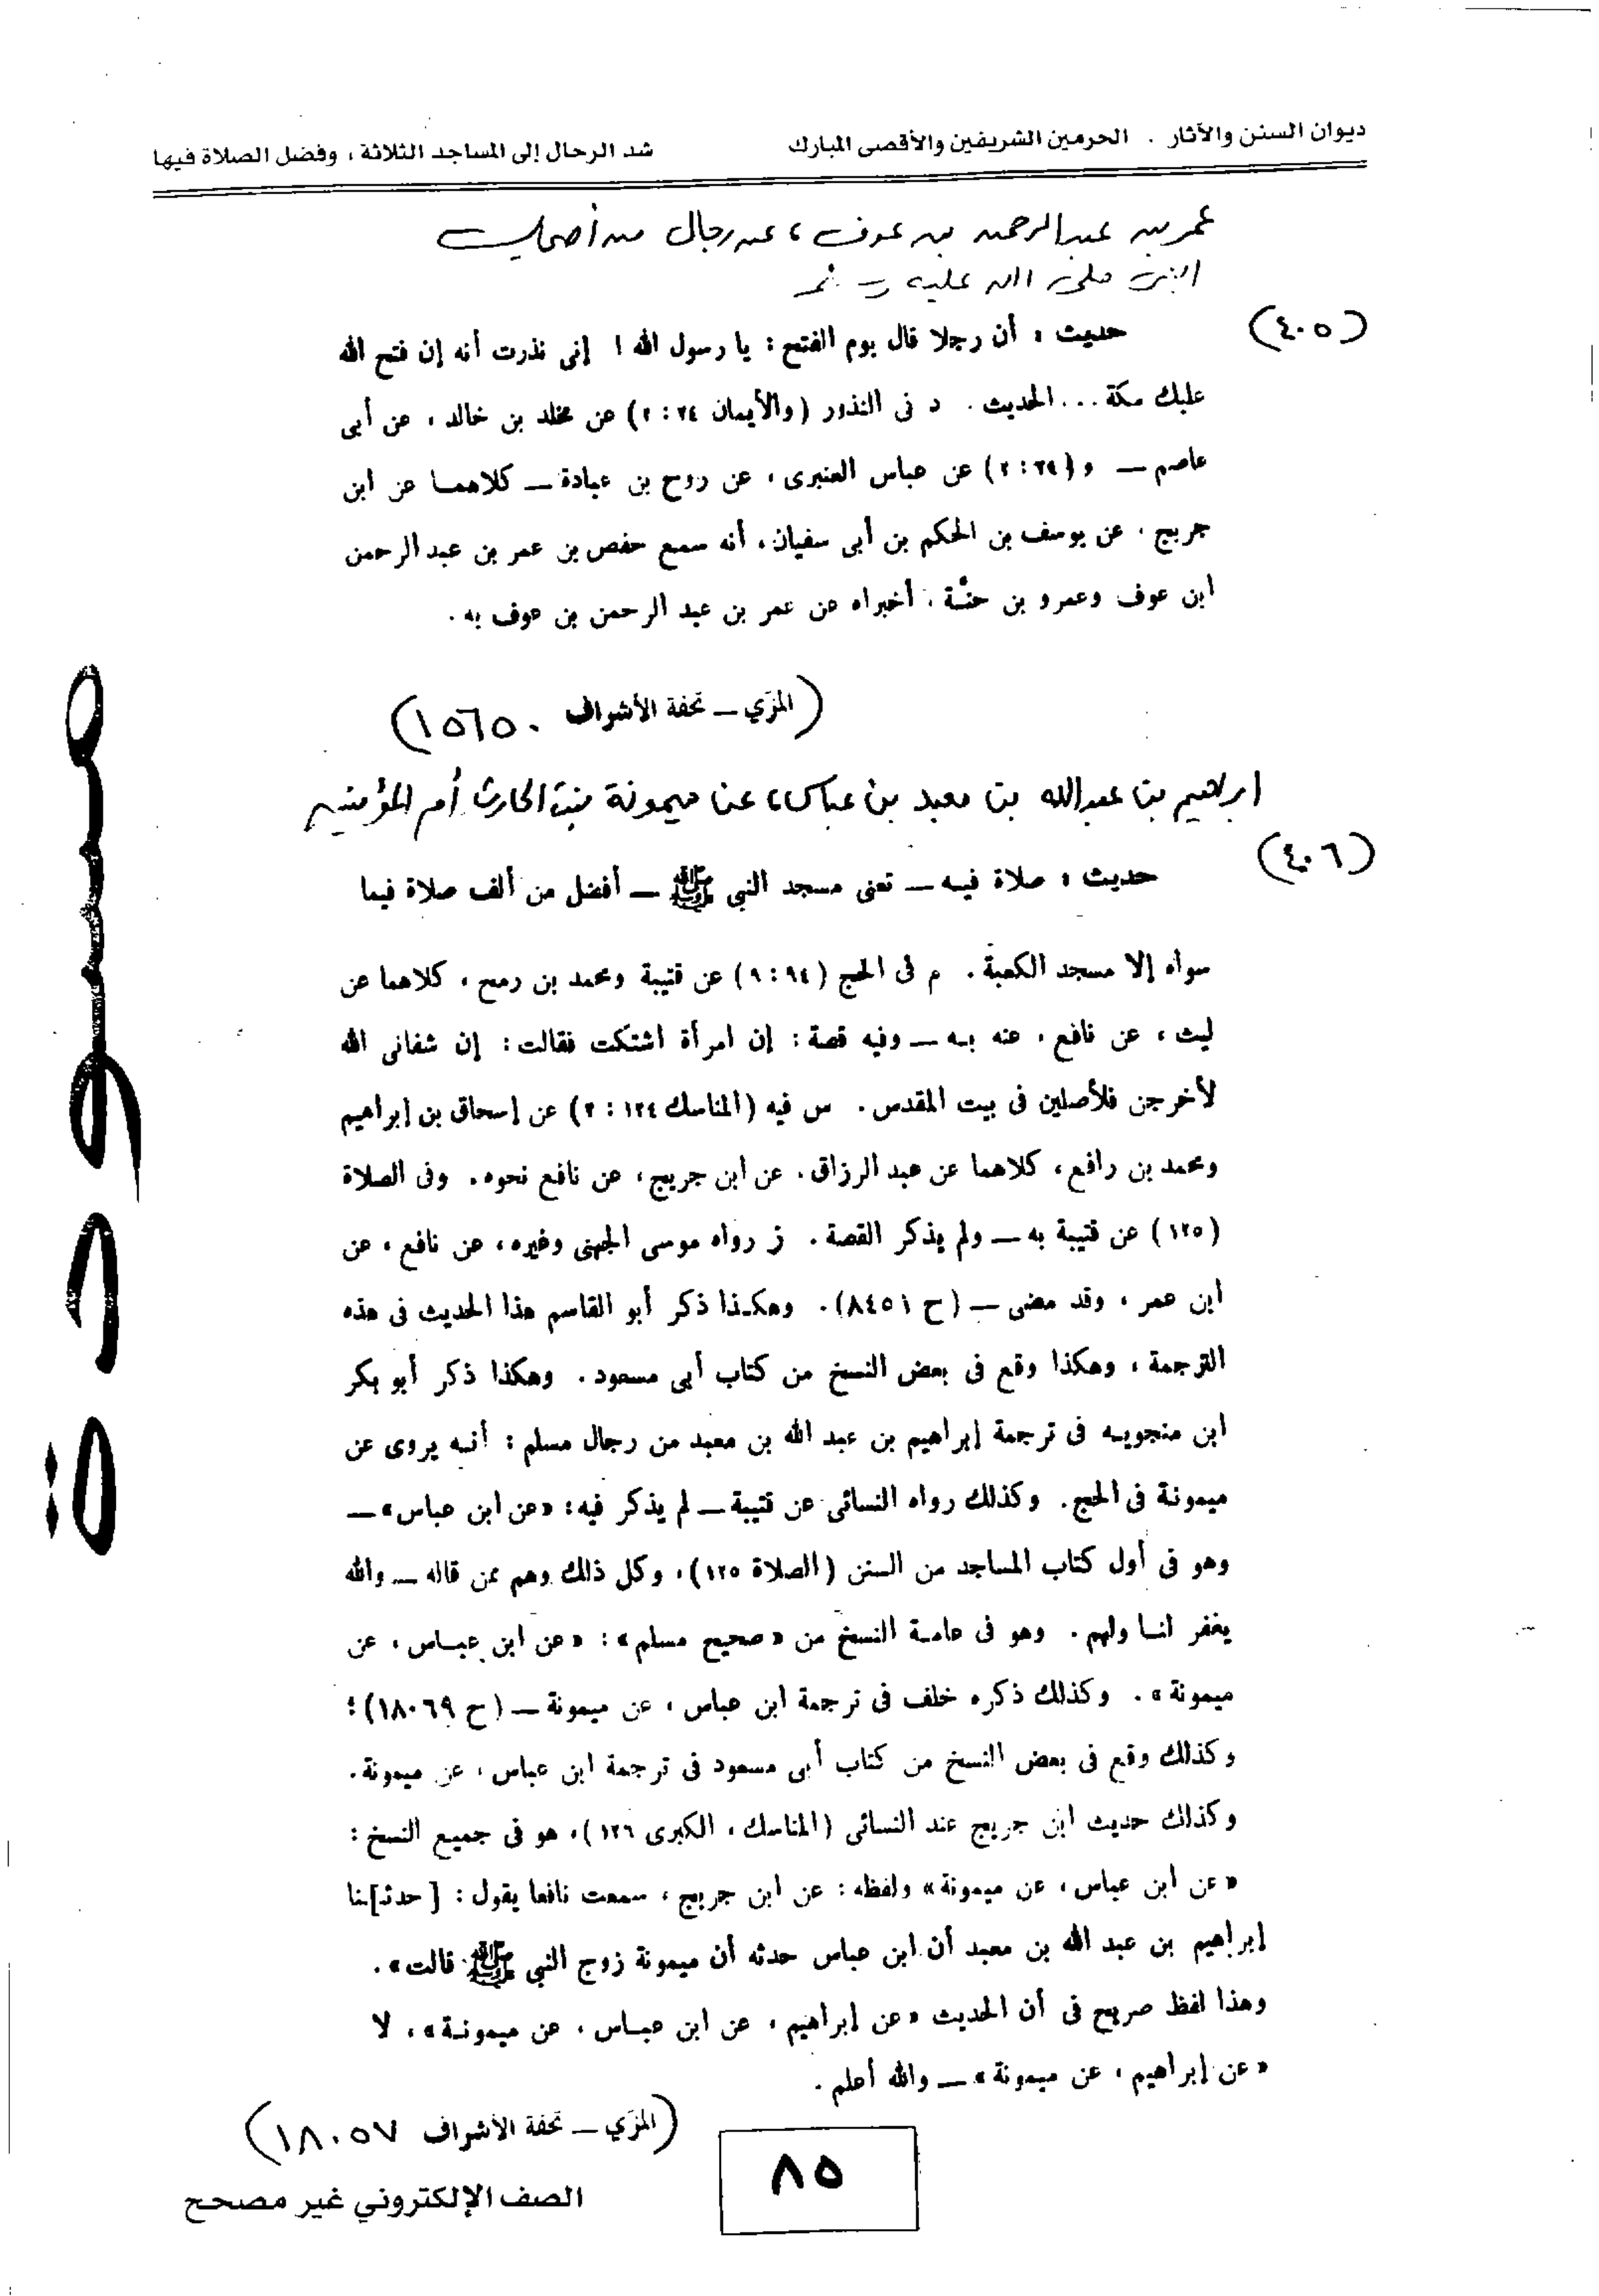 ديوان السنن والآثار . الحرمين الشريفين والأقصى المبارك
شد الرحال إلى المساجد الثلاثة ، وفضل الصلاة فيها
عمر بن عبدالرحمن بن عوف ، عن رجال من أصحاب
النبي صلى الله عليه وسلم
(٤٠٥) حديث : أن رجلا قال يوم الفتح : يا رسول الله ! إنى نذرت أنه إن فتح الله
عليك مكة ... الحديث . د فى النذور (والأيمان ٢٤ : ٢) عن مخلد بن خالد ، عن أبى
عاصم — و (٢٤ : ٢) عن عباس العنبرى ، عن روح بن عبادة — كلاهما عن ابن
جريج ، عن يوسف بن الحكم بن أبى سفيان ، أنه سمع حفص بن عمر بن عبد الرحمن
ابن عوف وعمرو بن حنّة ، أخبراه عن عمر بن عبد الرحمن بن عوف به .
(المزّي — تحفة الأشراف ١٥٦٥٠)
ابراهيم بن عبدالله بن معبد بن عباس ، عن ميمونة بنت الحارث أم المؤمنين
(٤٠٦) حديث : صلاة فيه — تعنى مسجد النبي ﷺ — أفضل من ألف صلاة فيما
سواه إلا مسجد الكعبة . م فى الحج (٩٤ : ٩) عن قتيبة ومحمد بن رمح ، كلاهما عن
ليث ، عن نافع ، عنه به — وفيه قصة : إن امرأة اشتكت فقالت : إن شفانى الله
لأخرجن فلأصلين فى بيت المقدس . س فيه (المناسك ١٢٤ : ٢) عن إسحاق بن إبراهيم
ومحمد بن رافع ، كلاهما عن عبد الرزاق ، عن ابن جريج ، عن نافع نحوه . وفى الصلاة
(١٢٥) عن قتيبة به — ولم يذكر القصة . ز رواه موسى الجهنى وغيره ، عن نافع ، عن
ابن عمر ، وقد مضى — (ح ٨٤٥١) . وهكذا ذكر أبو القاسم هذا الحديث فى هذه
الترجمة ، وهكذا وقع فى بعض النسخ من كتاب أبى مسعود . وهكذا ذكر أبو بكر
ابن منجويه فى ترجمة إبراهيم بن عبد الله بن معبد من رجال مسلم : أنه يروى عن
ميمونة فى الحج . وكذلك رواه النسائى عن قتيبة — لم يذكر فيه : «عن ابن عباس» —
وهو فى أول كتاب المساجد من السنن (الصلاة ١٢٥) ، وكل ذلك وهم ممن قاله — والله
يغفر لنا ولهم . وهو فى عامة النسخ من «صحيح مسلم» : «عن ابن عباس ، عن
ميمونة» . وكذلك ذكره خلف فى ترجمة ابن عباس ، عن ميمونة — (ح ١٨٠٦٩) ؛
وكذلك وقع فى بعض النسخ من كتاب أبى مسعود فى ترجمة ابن عباس ، عن ميمونة .
وكذلك حديث ابن جريج عند النسائى (المناسك ، الكبرى ١٢٦) ، هو فى جميع النسخ :
«عن ابن عباس ، عن ميمونة» ولفظه : عن ابن جريج ، سمعت نافعا يقول : [حدث]نا
إبراهيم بن عبد الله بن معبد أن ابن عباس حدثه أن ميمونة زوج النبي ﷺ قالت» .
وهذا لفظ صريح فى أن الحديث «عن إبراهيم ، عن ابن عباس ، عن ميمونة» ، لا
«عن إبراهيم ، عن ميمونة» — والله أعلم .
(المزّي — تحفة الأشراف ١٨٠٥٧)
٨٥
الصف الإلكتروني غير مصحح
مسودة